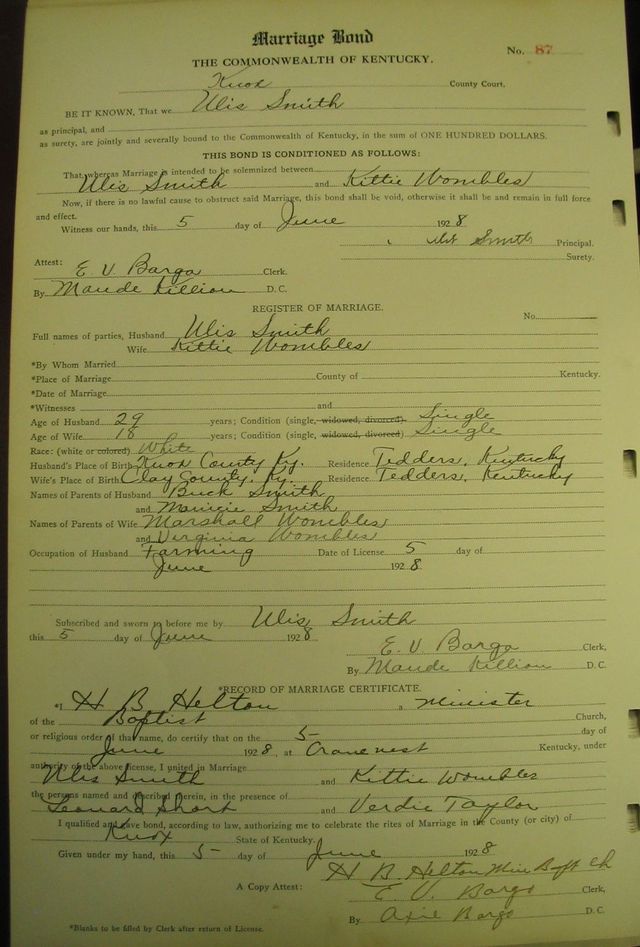 Marriage Bond
No. 87
THE COMMONWEALTH OF KENTUCKY.
Knox County Court.
BE IT KNOWN, That we Ulis Smith
as principal, and
as surety, are jointly and severally bound to the Commonwealth of Kentucky, in the sum of ONE HUNDRED DOLLARS.
THIS BOND IS CONDITIONED AS FOLLOWS:
That, whereas Marriage is intended to be solemnized between
Ulis Smith and Kittie Wombles
Now, if there is no lawful cause to obstruct said Marriage, this bond shall be void, otherwise it shall be and remain in full force
and effect.
Witness our hands, this 5 day of June 1928
Smith Principal.
Surety.
Attest: E. V. Bargo Clerk.
By Maude Killion D. C.
REGISTER OF MARRIAGE.
No.
Full names of parties, Husband Ulis Smith
Wife Kittie Wombles
*By Whom Married
*Place of Marriage County of Kentucky.
*Date of Marriage
*Witnesses and
Age of Husband 29 years; Condition (single, widowed, divorced) Single
Age of Wife 18 years; Condition (single, widowed, divorced) Single
Race: (white or colored) White
Husband's Place of Birth Knox County Ky. Residence Tedders, Kentucky
Wife's Place of Birth Clay County, Ky. Residence Tedders, Kentucky
Names of Parents of Husband Buck Smith
and Smith
Names of Parents of Wife Marshall Wombles
and Virginia Wombles
Occupation of Husband Farming Date of License 5 day of
June 1928
Subscribed and sworn to before me by Ulis Smith
this 5 day of June 1928
E. V. Bargo Clerk,
By Maude Killion D. C.
*RECORD OF MARRIAGE CERTIFICATE.
*I H B Helton a Minister
of the Baptist Church,
or religious order of that name, do certify that on the 5 day of
June 1928, at Cranenest Kentucky, under
authority of the above license, I united in Marriage
Ulis Smith and Kittie Wombles
the persons named and described herein, in the presence of
Leonard Short and Verdie Taylor
I qualified and gave bond, according to law, authorizing me to celebrate the rites of Marriage in the County (or city) of
Knox State of Kentucky.
Given under my hand, this 5 day of June 1928
H B. Helton Min Bapt Ch
A Copy Attest: E. V. Bargo Clerk,
By Bargo D. C.
*Blanks to be filled by Clerk after return of License.